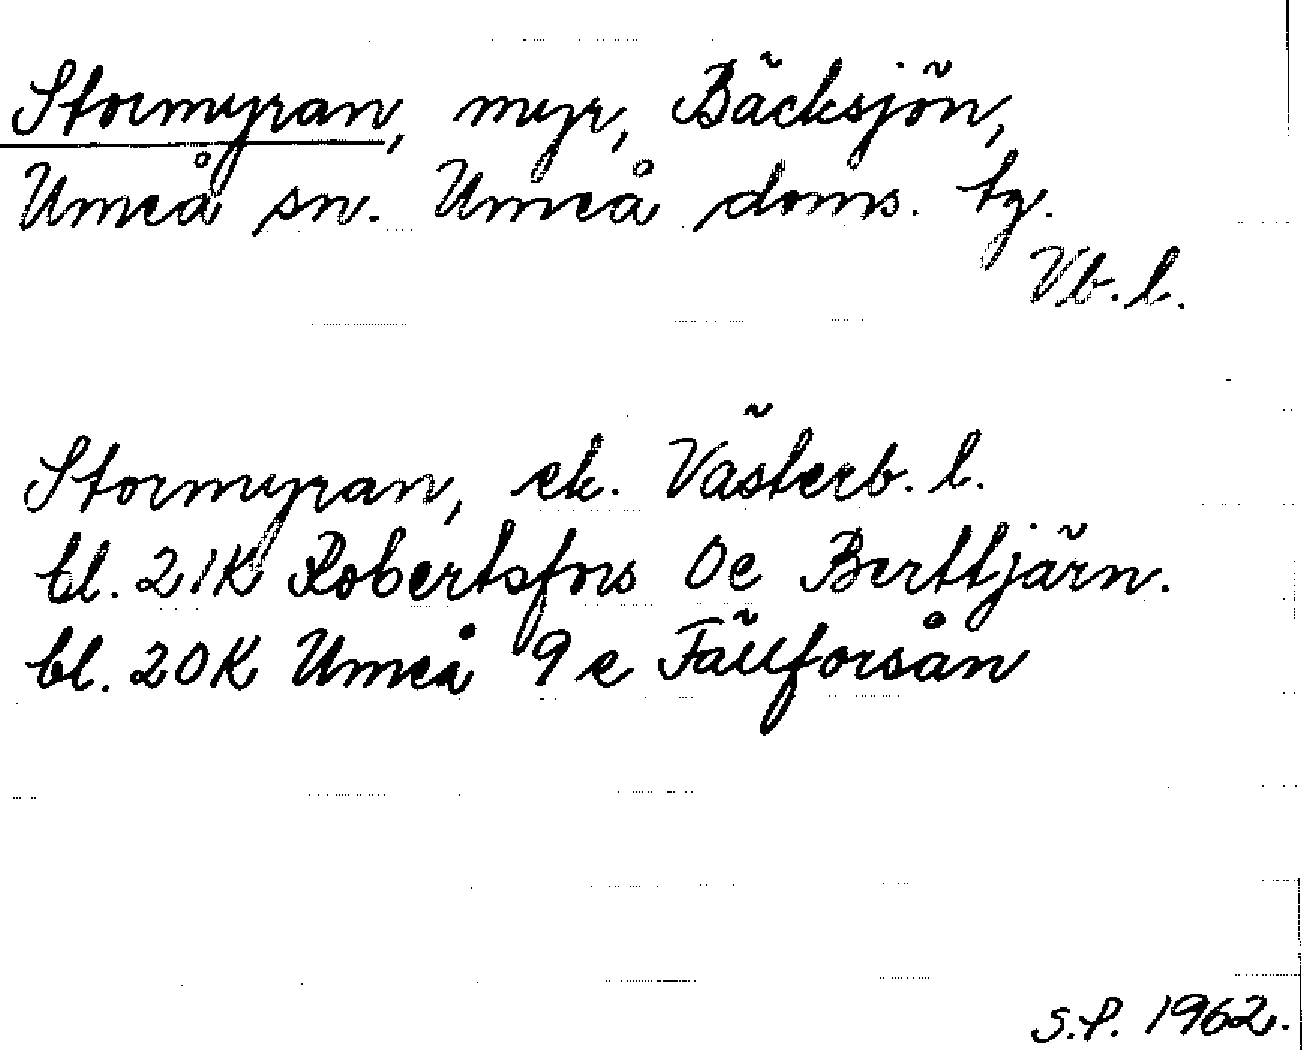 Stormyran, myr, Bäcksjön,
Umeå sn. Umeå doms. tg.
Vb. l.
Stormyran, ek. Västerb. l.
bl. 21K Robertsfors 0e Berttjärn.
bl. 20K Umeå 9e Fällforsån
S.P. 1962.